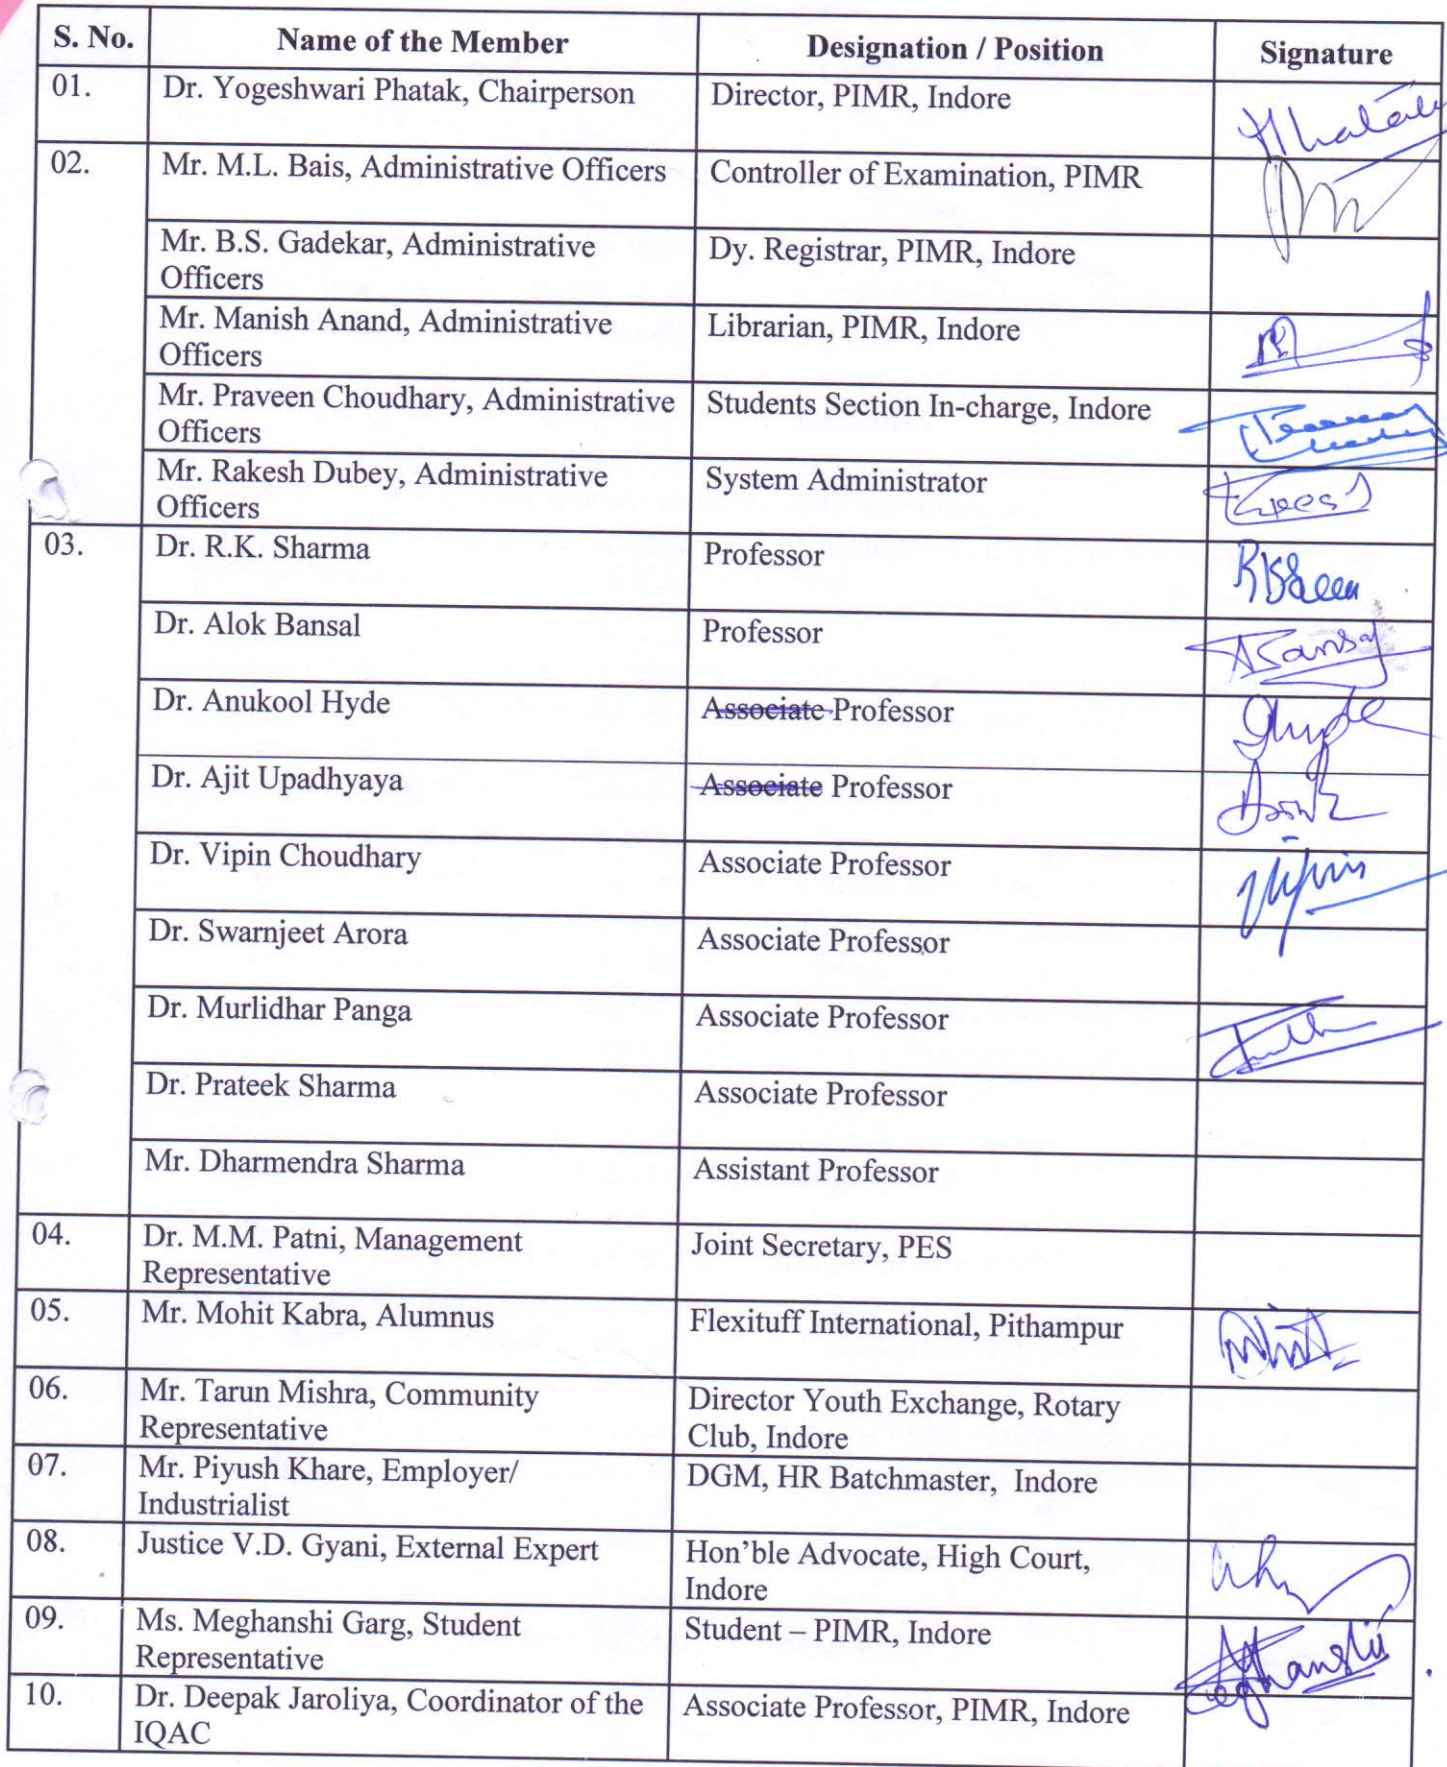 S. No. Name of the Member Designation / Position Signature
01. Dr. Yogeshwari Phatak, Chairperson Director, PIMR, Indore
02. Mr. M.L. Bais, Administrative Officers Controller of Examination, PIMR
Mr. B.S. Gadekar, Administrative Dy. Registrar, PIMR, Indore
Officers
Mr. Manish Anand, Administrative Librarian, PIMR, Indore
Officers
Mr. Praveen Choudhary, Administrative Students Section In-charge, Indore
Officers
Mr. Rakesh Dubey, Administrative System Administrator
Officers
03. Dr. R.K. Sharma Professor
Dr. Alok Bansal Professor
Dr. Anukool Hyde Associate Professor
Dr. Ajit Upadhyaya Associate Professor
Dr. Vipin Choudhary Associate Professor
Dr. Swarnjeet Arora Associate Professor
Dr. Murlidhar Panga Associate Professor
Dr. Prateek Sharma Associate Professor
Mr. Dharmendra Sharma Assistant Professor
04. Dr. M.M. Patni, Management Joint Secretary, PES
Representative
05. Mr. Mohit Kabra, Alumnus Flexituff International, Pithampur
06. Mr. Tarun Mishra, Community Director Youth Exchange, Rotary
Representative Club, Indore
07. Mr. Piyush Khare, Employer/ DGM, HR Batchmaster, Indore
Industrialist
08. Justice V.D. Gyani, External Expert Hon'ble Advocate, High Court,
Indore
09. Ms. Meghanshi Garg, Student Student – PIMR, Indore
Representative
10. Dr. Deepak Jaroliya, Coordinator of the Associate Professor, PIMR, Indore
IQAC